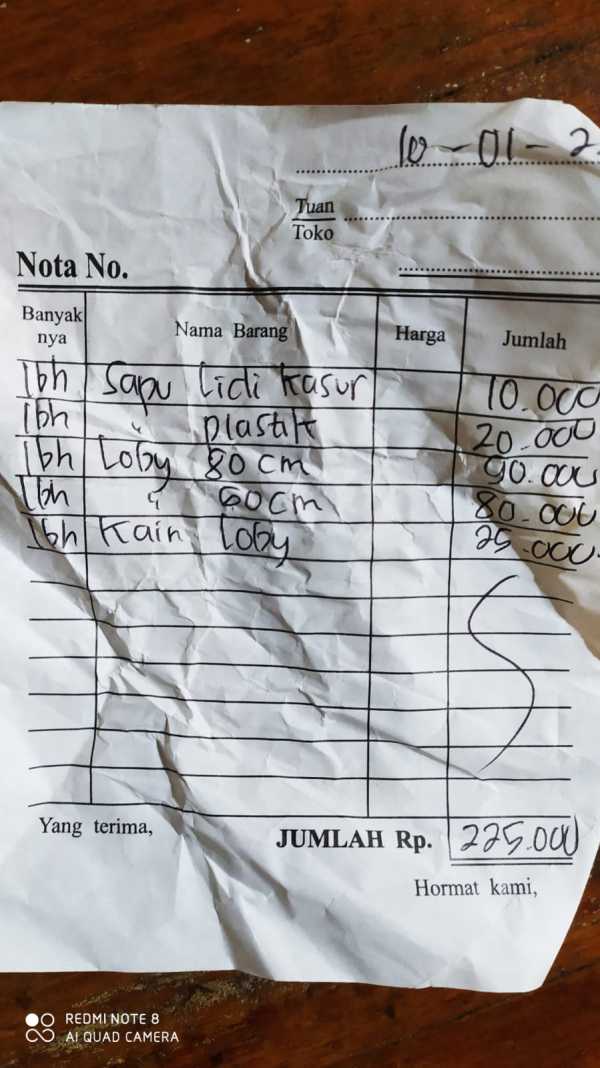 10-01-2
Tuan
Toko
Nota No.
Banyak nya Nama Barang Harga Jumlah
1bh Sapu Lidi Kasur 10.000
1bh " plastik 20.000
1bh Loby 80 cm 90.000
1bh " 60 cm 80.000
1bh Kain Loby 25.000
Yang terima, JUMLAH Rp. 225.000
Hormat kami,
REDMI NOTE 8
AI QUAD CAMERA